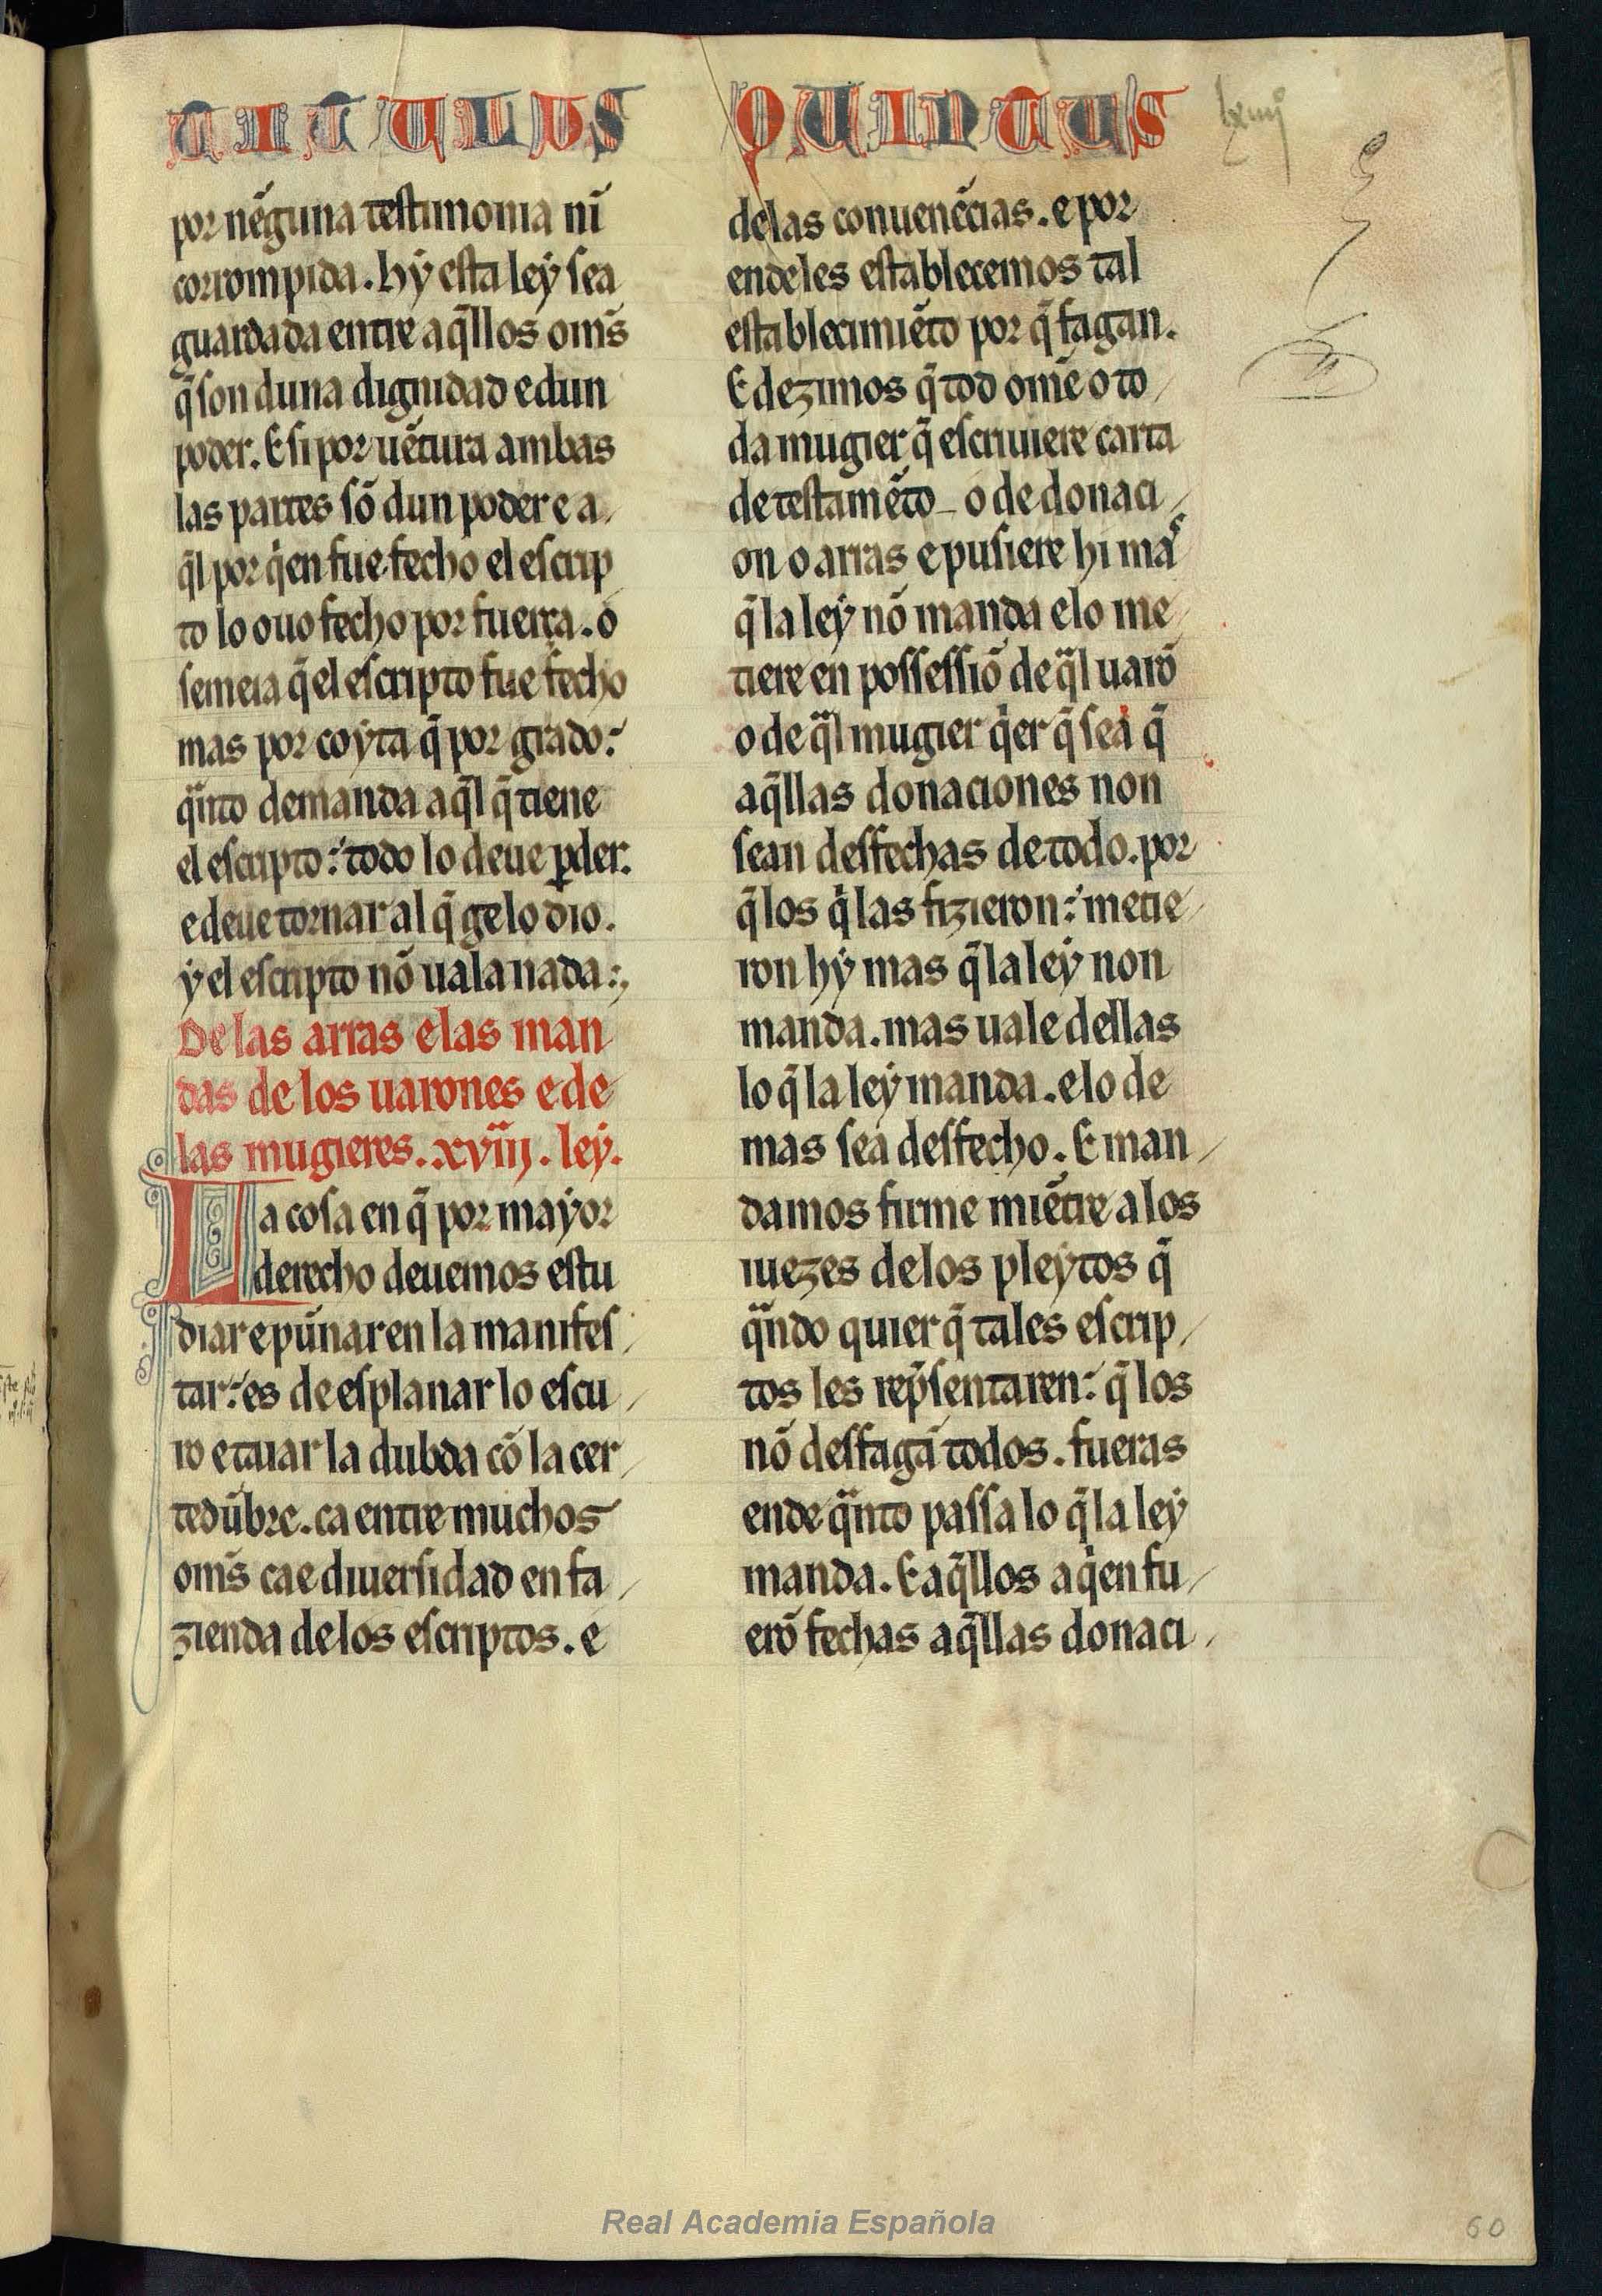 TITULUS QUINTUS
por nẽguna testimonia nĩ
corrompida. hẏ esta leẏ sea
guardada entre aq̃llos om̃s
q̃ son duna dignidad e dun
poder. E si por uẽtura ambas
las partes sõ dun poder e a
q̃l por q̇en fue fecho el escrip
to lo ouo fecho por fuerça. o
semeia q̃ el escripto fue fecho
mas por coẏta q̃ por grado:
qͣnto demanda aq̃l q̃ tiene
el escripto: todo lo deue ꝑder.
e deue tornar al q̃ gelo dio.
ẏ el escripto nõ uala nada:,
De las arras e las man
das de los uarones e de
las mugieres. xviij. leẏ.
La cosa en q̃ por maẏor
derecho deuemos estu
diar e pũnar en la manifes
tar: es de esplanar lo escu
ro e tirar la dubda cõ la cer
tedũbre. ca entre muchos
om̃s cae diuersidad en fa
zienda de los escriptos. e
de las conuenẽcias. e por
ende les establecemos tal
establecimiẽto por q̃ fagan.
E dezimos q̃ tod omẽ o to
da mugier q̃ escriuiere carta
de testamẽto o de donaci
on o arras e pusiere hi maˢ
q̃ la leẏ nõ manda e lo me
tiere en possessiõ de qͣl uarõ
o de qͣl mugier q̇er q̃ sea q̃
aq̃llas donaciones non
sean desfechas de todo. por
q̃ los q̃ las fizieron: metie
ron hẏ mas q̃ la leẏ non
manda. mas uale dellas
lo q̃ la leẏ manda. e lo de
mas sea desfecho. E man
damos firme miẽtre a los
iuezes de los pleẏtos q̃
qͣndo quier q̃ tales escrip
tos les rep̃sentaren: q̃ los
nõ desfagã todos. fueras
ende qͣnto passa lo q̃ la leẏ
manda. E aq̃llos a q̇en fu
erõ fechas aq̃llas donaci
Real Academia Española
60